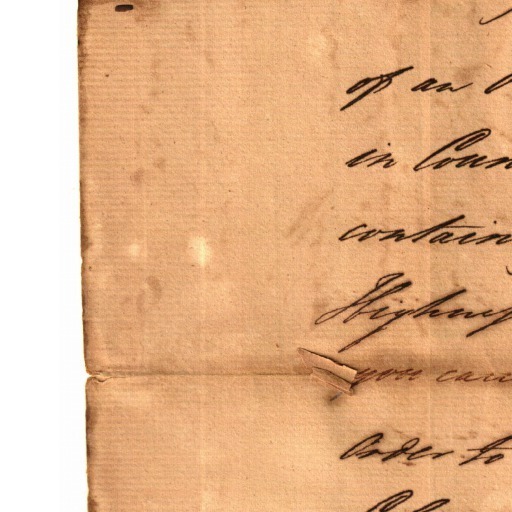 of an
in Coun
contain
Highness
you can
Order to